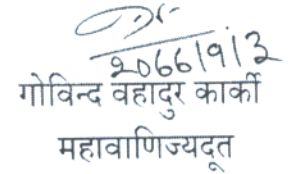 २०६६।९।३
गोविन्द वहादुर कार्की
महावाणिज्यदूत